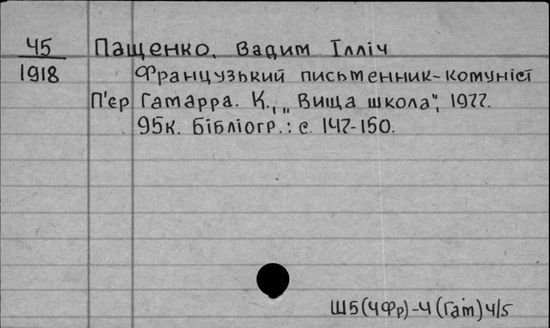 Ч5 Пащенко, Вадим Ілліч
1918 Французький письменник-комуніст
П'єр Гамарра. К., „Вища школа", 1977.
95к. Бібліогр.: с. 147-150.
Ш5(4Фр)-4(Гам)4/5